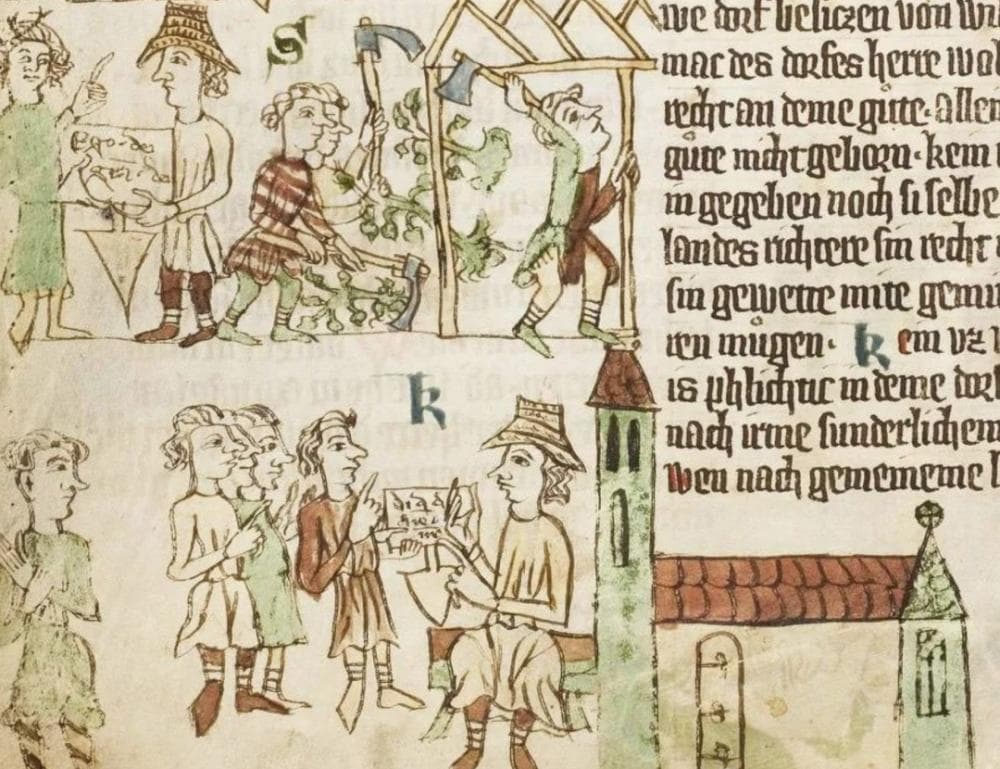 S
Ego · de
k
we dorf besiczen von wi
mac des dorfes herre wol
recht an deme gute · allei
gute nicht geborn · kein
in gegeben noch si selbe
landes richtere sin recht
sin gewette mite gemi
ren mugen · k ein vz
is phlichtic in deme dor
nach irme sunderlichem
wen nach gemeineme l